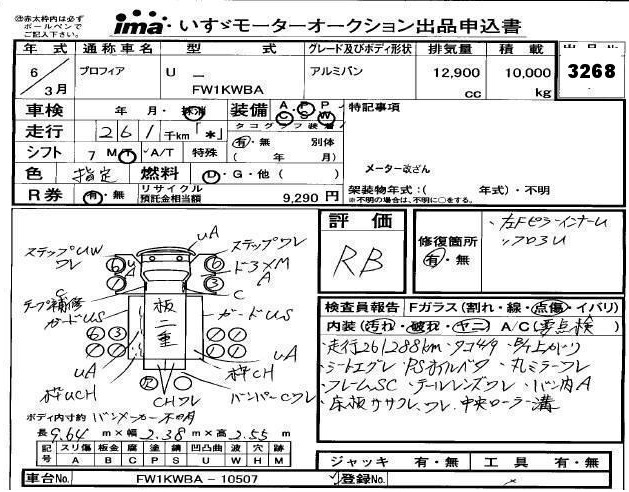 ②赤太枠内は必ず
ボールペンで
ご記入下さい。
ima・いすゞモーターオークション出品申込書
年 式 通称車名 型 式 グレード及びボディ形状 排気量 積載 出品No.
6/3月 プロフィア U — FW1KWBA アルミバン 12,900 cc 10,000 kg 3268
車検 年 月・抹消 装備 A P P C S W 特記事項
走行 261千km「*」 タコグラフ装着 有・無 別体 ( 年 月)
シフト 7 MT A/T 特殊 メーター改ざん
色 指定 燃料 D・G・他( ) 架装物年式:( 年式)・不明
※不明の場合は、不明に○をする。
R券 有・無 リサイクル預託金相当額 9,290 円
評価 RB
修復箇所 有・無
・左Fピラーインナーu
・フロ3u
ステップUW
ワレ
uA
ステップワレ
ドヨメM
A
C
テープ補修
ガードUS
板二重
ガードuS
uA
枠uCH
uA
枠CH
CHワレ
バンパーCワレ
検査員報告 Fガラス(割れ・線・点傷・イバリ)
内装(汚れ・破れ・ヤニ) A/C(要点検)
・走行261288km・タコ449
・シートエグレ・PSオイルベタ・丸ミラーワレ
・フレームSC・テールレンズワレ・バン内A
・床板ササクレ、ワレ・中央ローラー溝
ボディ内寸約 バンメーカー不明
長 9.64 m×幅 2.38 m×高 2.55 m
記号 スリ傷 板金 腐 塗 錆 凹凸曲 波 穴 跡
A B C P S U W H M
ジャッキ 有・無 工具 有・無
車台No. FW1KWBA－10507 登録No.